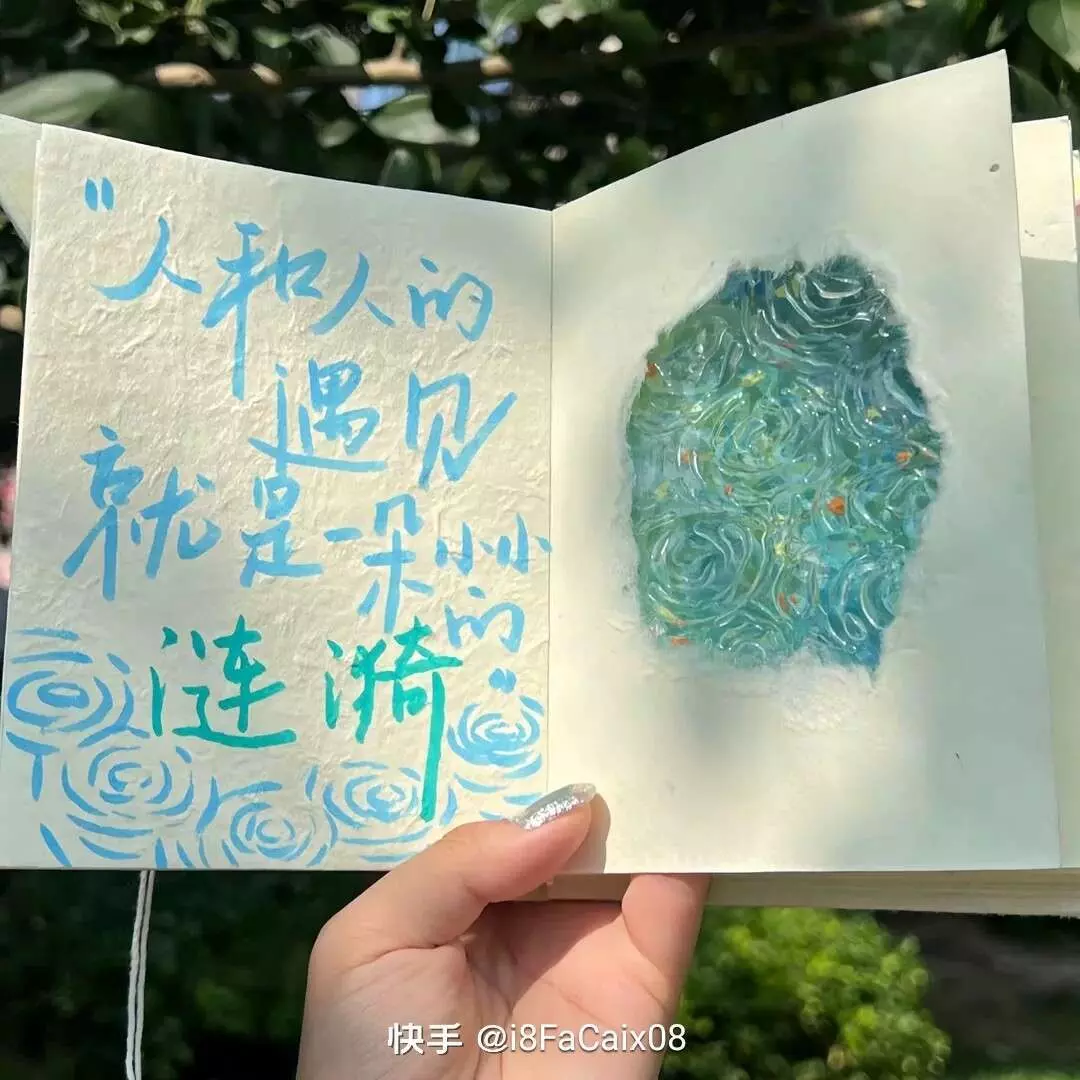 "人和人的
遇见
就是一朵小小
的"
涟漪
快手 @i8FaCaix08